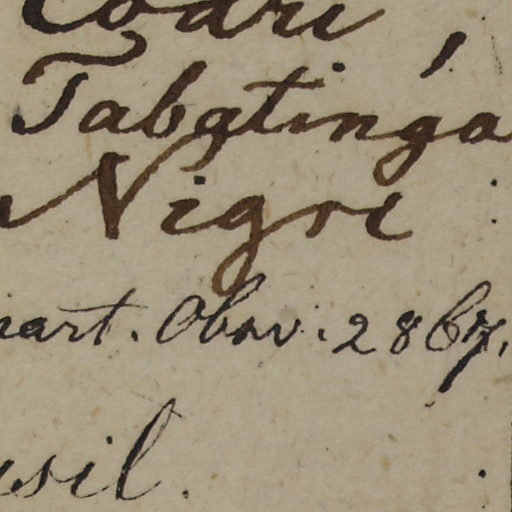 Codri,
Tabatinga
Nigri
mart. Obsv. 2867,
sil.